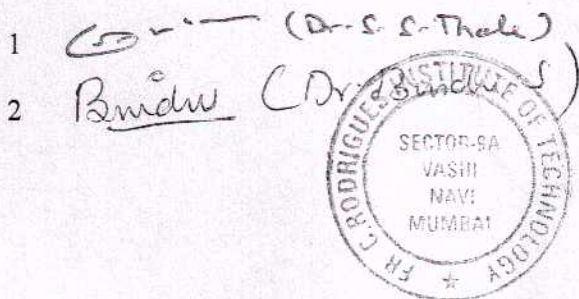 1 (Dr. S. S. Thale)
2 Bindu (Dr. Bindu S)
FR. C. RODRIGUES INSTITUTE OF TECHNOLOGY
SECTOR-9A
VASHI
NAVI
MUMBAI